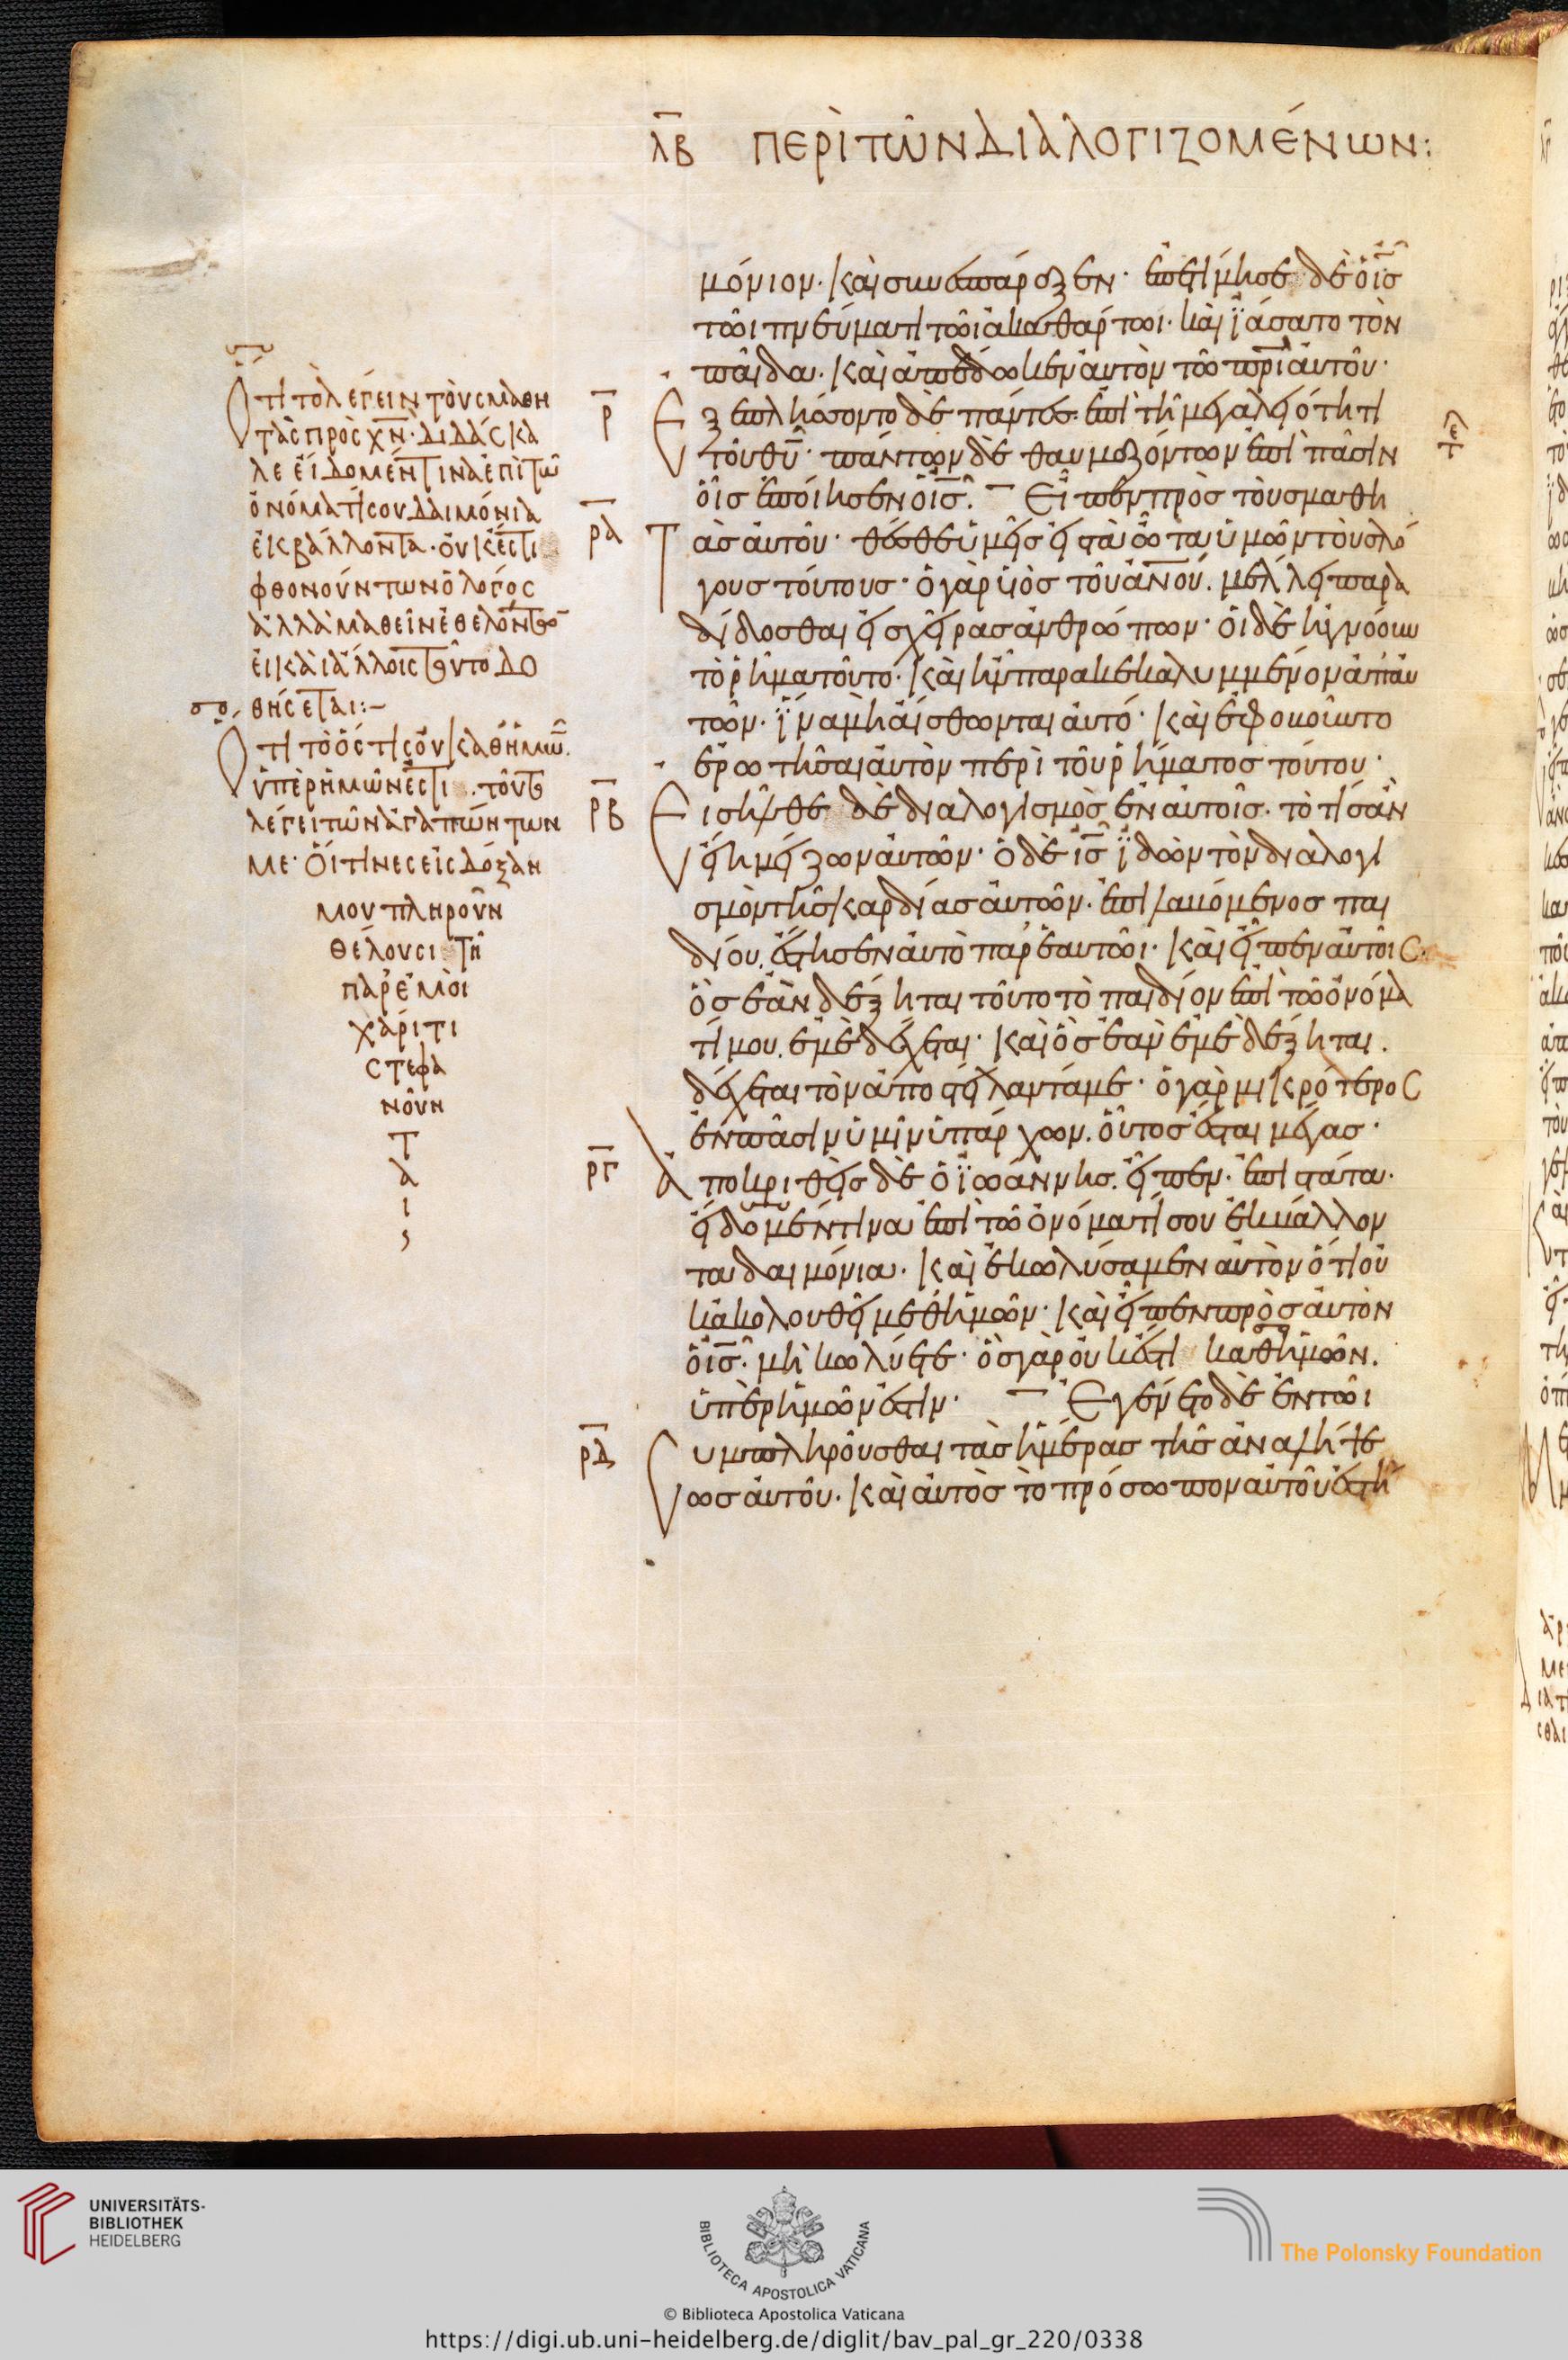 λβ ΠΕΡῚ ΤΩ͂Ν ΔΙΑΛΟΓΙΖΟΜΈΝΩΝ:
μόνιον· καὶ συνεσπάραξεν· ἐπετίμησε δὲ ὁ ἰς
τῶι πνεύματι τῶι ἀκαθάρτωι· καὶ ϊάσατο τὸν
παῖδα· καὶ ἀπέδωκεν αὐτὸν τῶ πρὶ αὐτοῦ·
ρ Ἐξεπλήσσοντο δὲ πάντες· ἐπὶ τῆ μεγαλειότητι
τοῦ θυ· πάντων δὲ θαυμαζόντων ἐπὶ πᾶσιν
οἷς ἐποίησεν ὁ ἰς. Εἶπεν πρὸς τοὺς μαθη
ρα Τὰς αὐτοῦ· θέσθε ὑμεῖς εἰς τὰ ὦτα ὑμῶν τοὺς λό
γους τούτους· ὁ γὰρ υἱὸς τοῦ ἀνου. μέλλει παρα
δίδοσθαι εἰς χεῖρας ἀνθρώπων· οἱ δὲ ἠγνόουν
τὸ ῥῆμα τοῦτο· καὶ ἦν παρακεκαλυμμένον ἀπ' αὐ
τῶν· ἵνα μὴ αἴσθωνται αὐτό· καὶ ἐφοβοῦντο
ἐρωτῆσαι αὐτὸν περὶ τοῦ ῥήματος τούτου·
ρβ Εἰσῆλθε δὲ διαλογισμὸς ἐν αὐτοῖς· τὸ τίς ἂν
εἴη μείζων αὐτῶν· ὁ δὲ ἰς ϊδὼν τὸν διαλογι
σμὸν τῆς καρδίας αὐτῶν· ἐπιλαβόμενος παι
δίου, ἔστησεν αὐτὸ παρ' ἑαυτῶι· καὶ εἶπεν αὐτοῖς·
ὃς ἐὰν δέξηται τοῦτο τὸ παιδίον ἐπὶ τῶ ὀνόμα
τί μου, ἐμὲ δέχεται· καὶ ὃς ἐὰν ἐμὲ δέξηται.
δέχεται τὸν ἀποστείλαντά με· ὁ γὰρ μικρότερος
ἐν πᾶσιν ὑμῖν ὑπάρχων. οὗτος ἔσται μέγας·
ργ Ἀποκριθεὶς δὲ ὁ ϊωάννης. εἶπεν· ἐπιστάτα·
εἴδομέν τινα ἐπὶ τῶ ὀνόματί σου ἐκβάλλον
τα δαιμόνια· καὶ ἐκωλύσαμεν αὐτὸν ὅτι οὐ
κ ἀκολουθεῖ μεθ' ἡμῶν· καὶ εἶπεν πρὸς αὐτὸν
ὁ ἰς· μὴ κωλύετε· ὃς γὰρ οὐκ ἔστι καθ' ἡμῶν.
ὑπὲρ ἡμῶν ἐστιν· Ἐγένετο δὲ ἐν τῶι
ρδ Συμπληροῦσθαι τὰς ἡμέρας τῆς ἀναλήψε
ως αὐτοῦ· καὶ αὐτὸς τὸ πρόσωπον αὐτοῦ ἐστή
Ὅτι τὸ λέγειν τοὺς μαθη
τὰς πρὸς χν· διδάσκα
λε εἴδομέν τινα ἐπὶ τῶ
ὀνόματί σου δαιμόνια
ἐκβάλλοντα· οὐκ ἔστι
φθονούντων ὁ λόγος
ἀλλὰ μαθεῖν ἐθελόντων
εἰ καὶ ἄλλοις τοῦτο δο
θήσεται:–
Ὅτι τὸ ὅστις οὐ καθ' ἡμῶν.
ὑπὲρ ἡμῶν ἐστι. τοῦτο
λέγει τῶν ἀγαπώντων
με· οἵτινες εἰς δόξαν
μου πληροῦν
θέλουσι τῆ
παρ' ἐμοὶ
χάριτι
στεφα
νοῦν
τ
α
ι
:
UNIVERSITÄTS-
BIBLIOTHEK
HEIDELBERG
BIBLIOTECA APOSTOLICA VATICANA
The Polonsky Foundation
© Biblioteca Apostolica Vaticana
https://digi.ub.uni-heidelberg.de/diglit/bav_pal_gr_220/0338